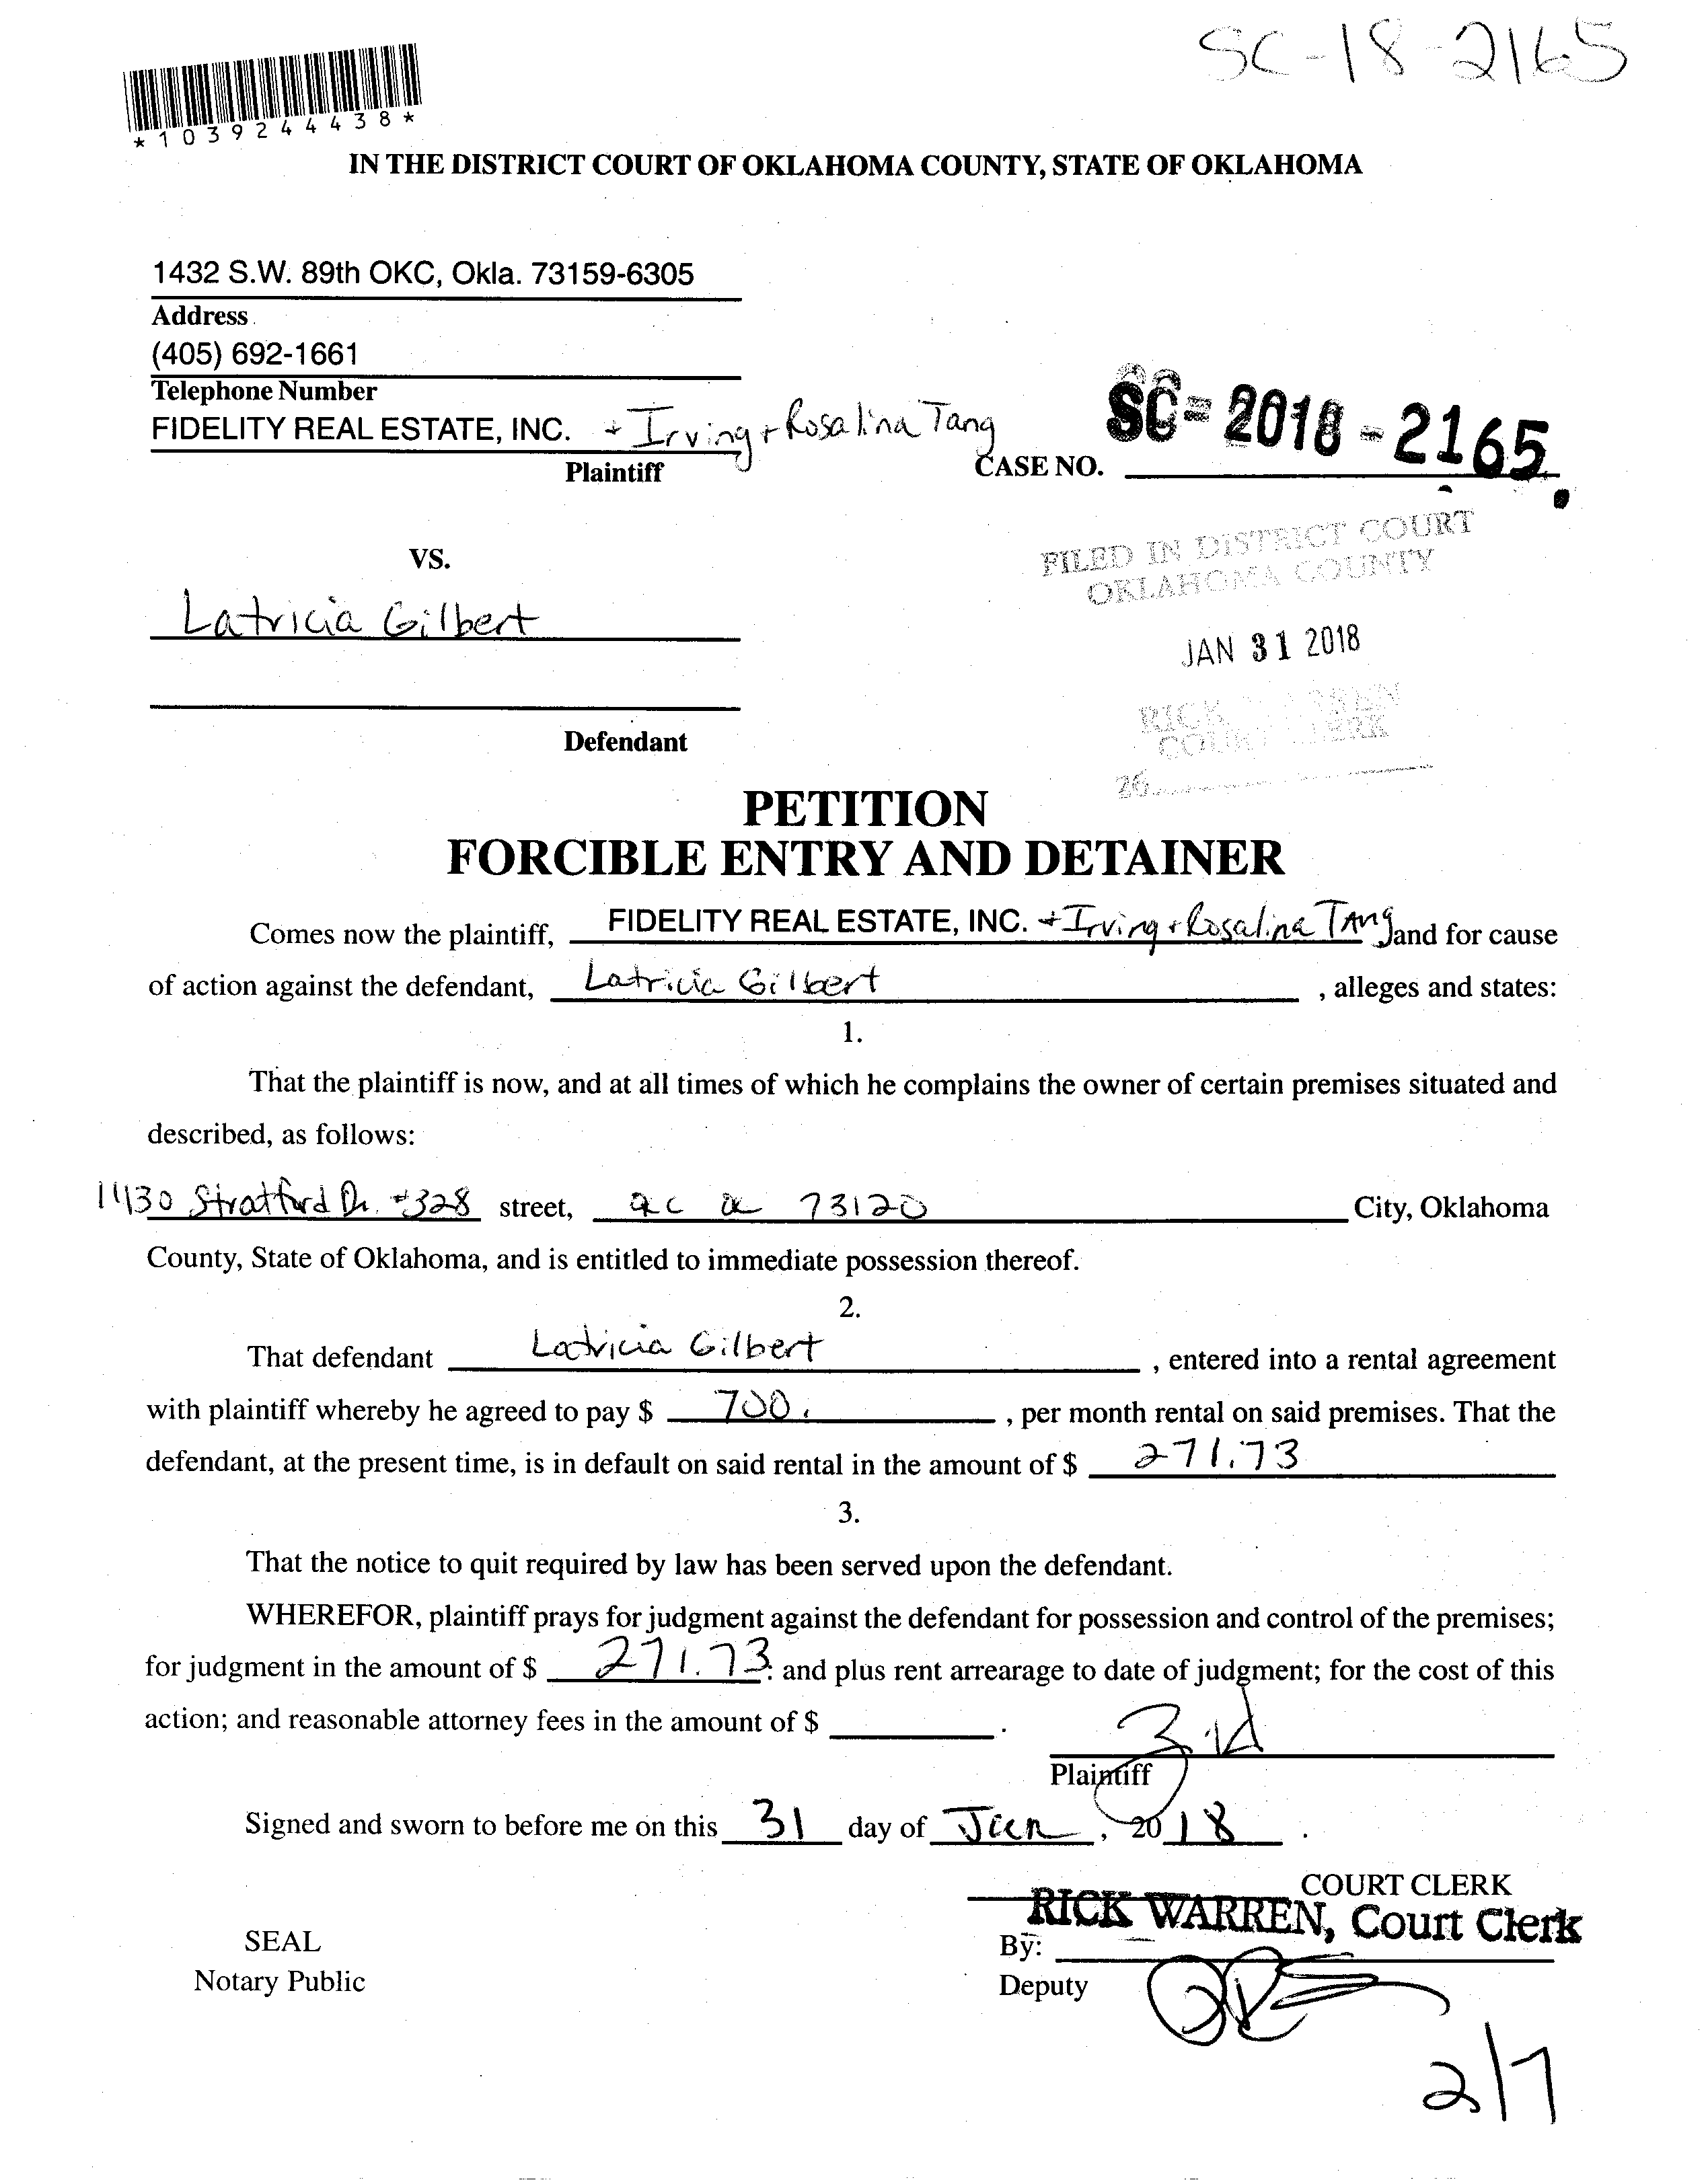 SC-18-2165
*1039244438*
IN THE DISTRICT COURT OF OKLAHOMA COUNTY, STATE OF OKLAHOMA
1432 S.W. 89th OKC, Okla. 73159-6305
Address
(405) 692-1661
Telephone Number
FIDELITY REAL ESTATE, INC. + Irving + Rosalina Tang
Plaintiff
CASE NO. SC-2018-2165
VS.
FILED IN DISTRICT COURT
OKLAHOMA COUNTY
Latricia Gilbert
JAN 31 2018
RICK WARREN
COURT CLERK
26
Defendant
PETITION
FORCIBLE ENTRY AND DETAINER
Comes now the plaintiff, FIDELITY REAL ESTATE, INC. + Irving + Rosalina Tang and for cause
of action against the defendant, Latricia Gilbert , alleges and states:
1.
That the plaintiff is now, and at all times of which he complains the owner of certain premises situated and
described, as follows:
11430 Stratford Dr. #328 street, OKC OK 73120 City, Oklahoma
County, State of Oklahoma, and is entitled to immediate possession thereof.
2.
That defendant Latricia Gilbert , entered into a rental agreement
with plaintiff whereby he agreed to pay $ 700. , per month rental on said premises. That the
defendant, at the present time, is in default on said rental in the amount of $ 271.73
3.
That the notice to quit required by law has been served upon the defendant.
WHEREFOR, plaintiff prays for judgment against the defendant for possession and control of the premises;
for judgment in the amount of $ 271.73: and plus rent arrearage to date of judgment; for the cost of this
action; and reasonable attorney fees in the amount of $ .
Plaintiff
Signed and sworn to before me on this 31 day of Jan , 2018 .
COURT CLERK
RICK WARREN, Court Clerk
SEAL
By:
Notary Public
Deputy
2/7